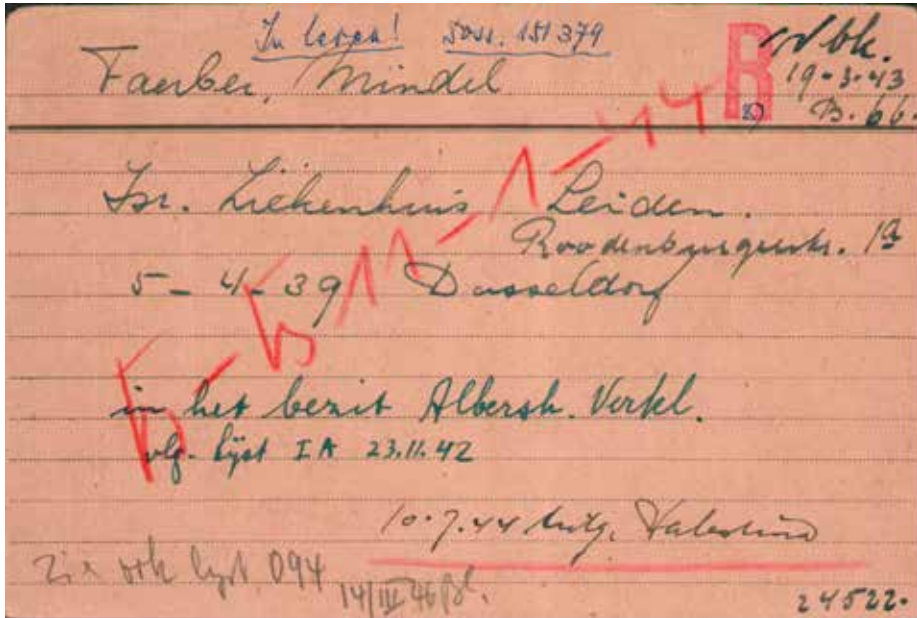 In leven! Doss. 151379
Faerber, Mindel
R
Wbk.
19-3-43
B. 66.
Isr. Ziekenhuis Leiden.
Roodenburgerstr. 1a
5-4-39 Dusseldorf
B-B 11-1-44
in het bezit Albersh. Verkl.
vlg. lijst IA 23.11.42
10.7.44 Palestina
Zie ook lijst 094
14/III 46
24522.